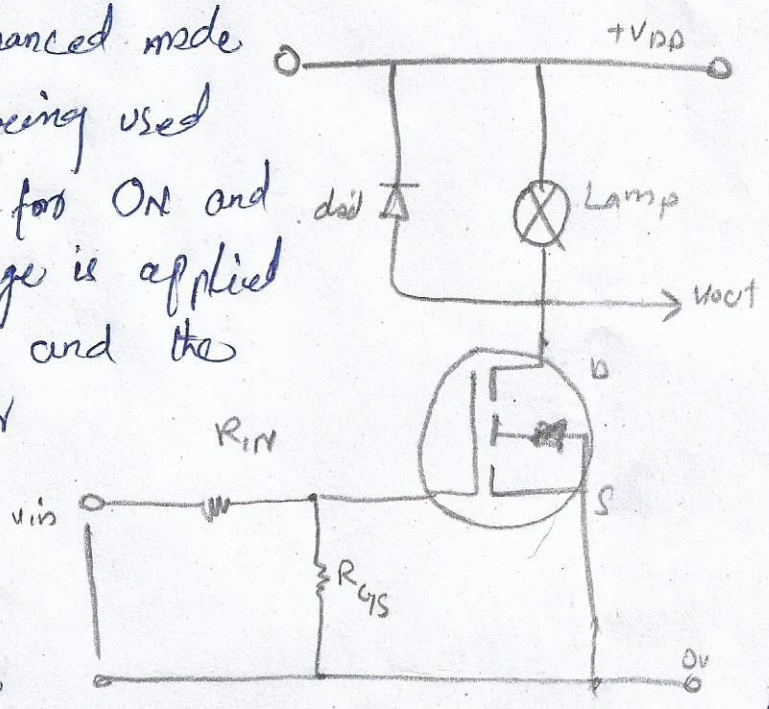 hanced mode
being used
for ON and
ge is applied
and the
+VDD
dsd
Lamp
Vout
D
S
RIN
Vin
RGS
0v